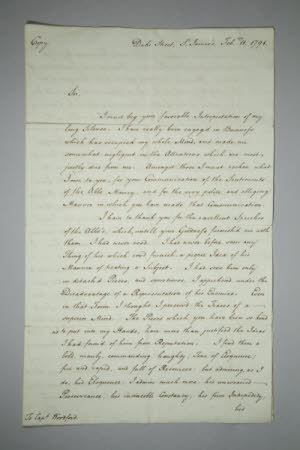 Copy
Duke Street, St. James's Feb. 1791.
Sir,
I must beg your favorable Interpretation of my
long Silence. I have really been engaged in Business
which has occupied my whole Mind, and made me
somewhat negligent in the Attentions which are most
justly due from me. Amongst these I must reckon what
I owe to you, for your Communication of the Sentiments
of the Abbé Maury, and for the very polite and obliging
Manner in which you have made that Communication.
I have to thank you for the excellent Speeches
of the Abbé's, which, until your Goodness furnished me with
them, I had never read. I had never before seen any
Thing of his which could furnish a proper Idea of his
Manner of treating a Subject. I had seen him only
in detach'd Pieces, and sometimes, I apprehend under the
Disadvantage of a Representation of his Enemies. Even
in that Form I thought I perceived the Traces of a
superior Mind. The Pieces which you have been so kind
as to put into my Hands, have more than justified the Ideas
I had formed of him from Reputation. I find there a
bold, manly, commanding, haughty, Tone of Eloquence;
free and rapid, and full of Resources; but admiring, as I
do, his Eloquence, I admire much more, his unwearied
Perseverance, his invincible Constancy, his firm Intrepidity
his
To Capt. Woodford.